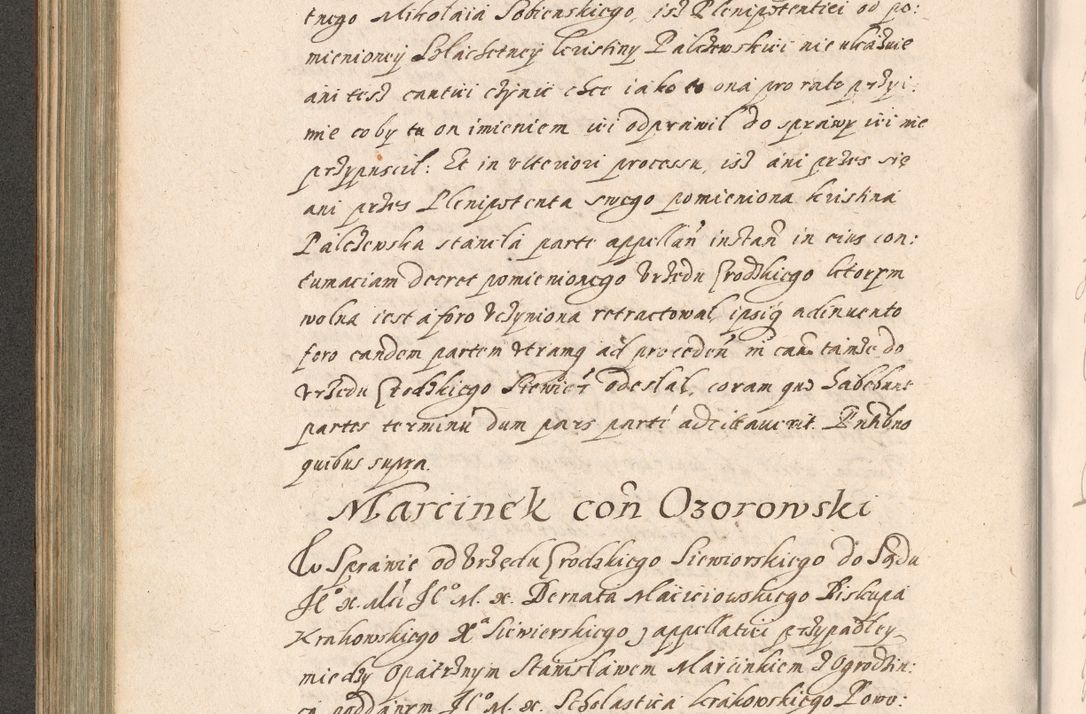 tnego Mikołaia Sobienskiego, isz Plenipotentiei od po:
mienioney Szlachetney Kristiny Palczewskiei nie ukazuie
ani tesz cautiei czynic chce iako to ona pro rato przyi:
mie co by tu on imieniem iei odprawil do sprawy iei nie
przypuscil: Et in vlteriori processu, isz ani przes się
ani przes Plenipotenta swego pomieniona Kristina
Palczewska stanęla parte appellań instań in eius con:
tumaciam decret pomienionego Vrzędu Grodzkiego ktorym
wolna iest a foro vczyniona retractował, ipsiq adinuento
foro eandem partem vtramq ad proceden in cau tamze do
Vrzędu Grodzkiego Siewier odesłał, coram quo habebunt
partes terminũ dum pars parti adcitauerit. Pntibno
quibus supra.
Marcinek con Ozorowski
W Sprawie od Vrzędu Grodzkiego Siewiorskiego do Sądu
Jº x. Mći Jº M. x. Bernata Maciciowskiego Biskupa
Krakowskiego Xa Siewierskiego z appellatiei przypadłey
miedzy Opatrznym Stanisławem Marcinkiem z Ogrodzin:
ca poddanym Jº M. x. Scholastica Krakowskiego Powo: